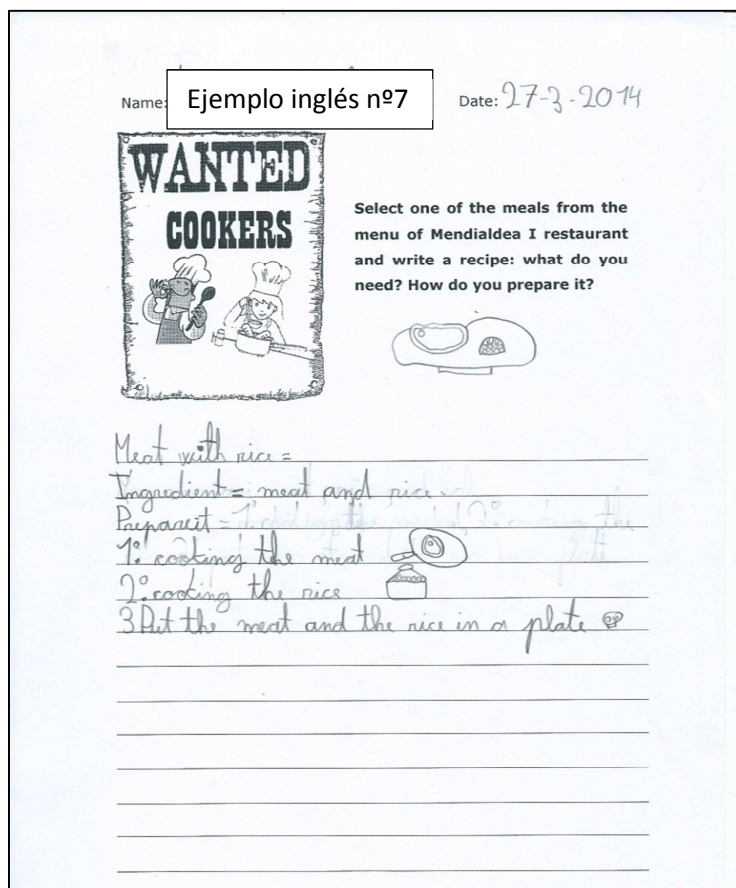 Name: Ejemplo inglés nº7 Date: 27-3-2014
WANTED
COOKERS
Select one of the meals from the
menu of Mendialdea I restaurant
and write a recipe: what do you
need? How do you prepare it?
Meat with rice =
Ingredient = meat and rice
Preparcit =
1º cooking the meat
2º cooking the rice
3 Put the meat and the rice in a plate